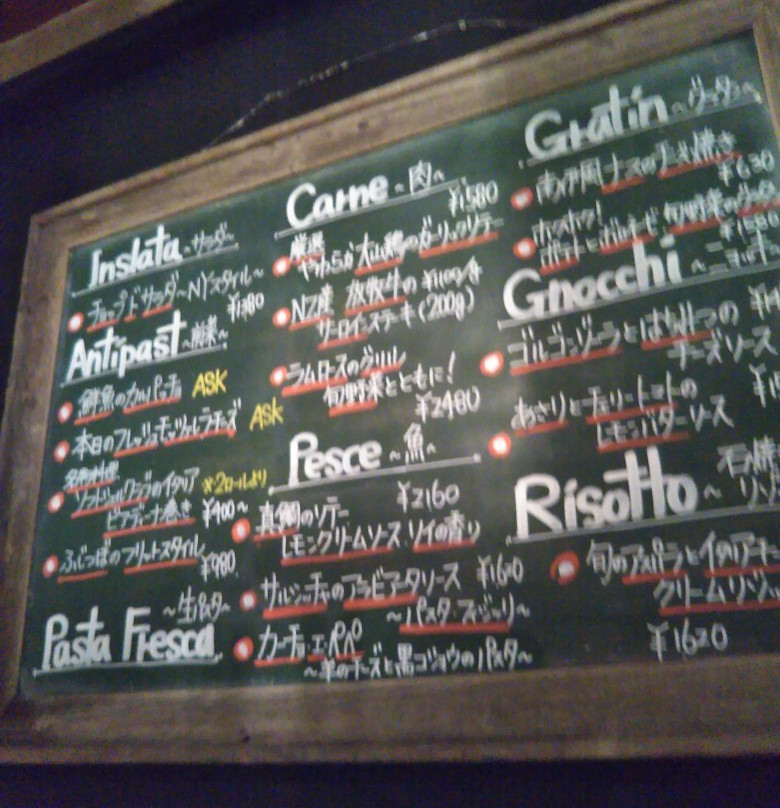 Inslata ~サラダ~
チョップドサラダ~NYスタイル~
¥1380
Antipast ~前菜~
鮮魚のカルパッチョ ASK
本日のフレッシュモッツァレラチーズ ASK
名物料理
ソフトシェルクラブのイタリア ※2ロールより
ピアディーナ巻き ¥400~
ふじっぽのフリットスタイル
¥980
~生パスタ~
Pasta Fresca
Carne ~肉~
¥1580
厳選
やわらか大山鶏のガーリックソテー
NZ産 放牧牛の ¥1100/食
サーロインステーキ(200g)
ラムロースのグリル
旬野菜とともに!
¥2480
Pesce ~魚~
真鯛のソテー ¥2160
レモンクリームソース ソイの香り
サルシッチャのアラビアータソース ¥1620
~パスタ・フジッリ~
カーチョ・エ・ペペ
~羊のチーズと黒コショウのパスタ~
Gratin ~グラタン~
ナスのチーズ焼き
¥630
ホクホク!
ポテトと 旬野菜の
Gnocchi ~ニョッキ
ゴルゴンゾーラとはちみつの
チーズソース
あさりとチェリートマトの
レモンバターソース
Risotto ~
石焼
リゾ
旬のアスパラとイタリアモ
クリームリゾ
¥1620